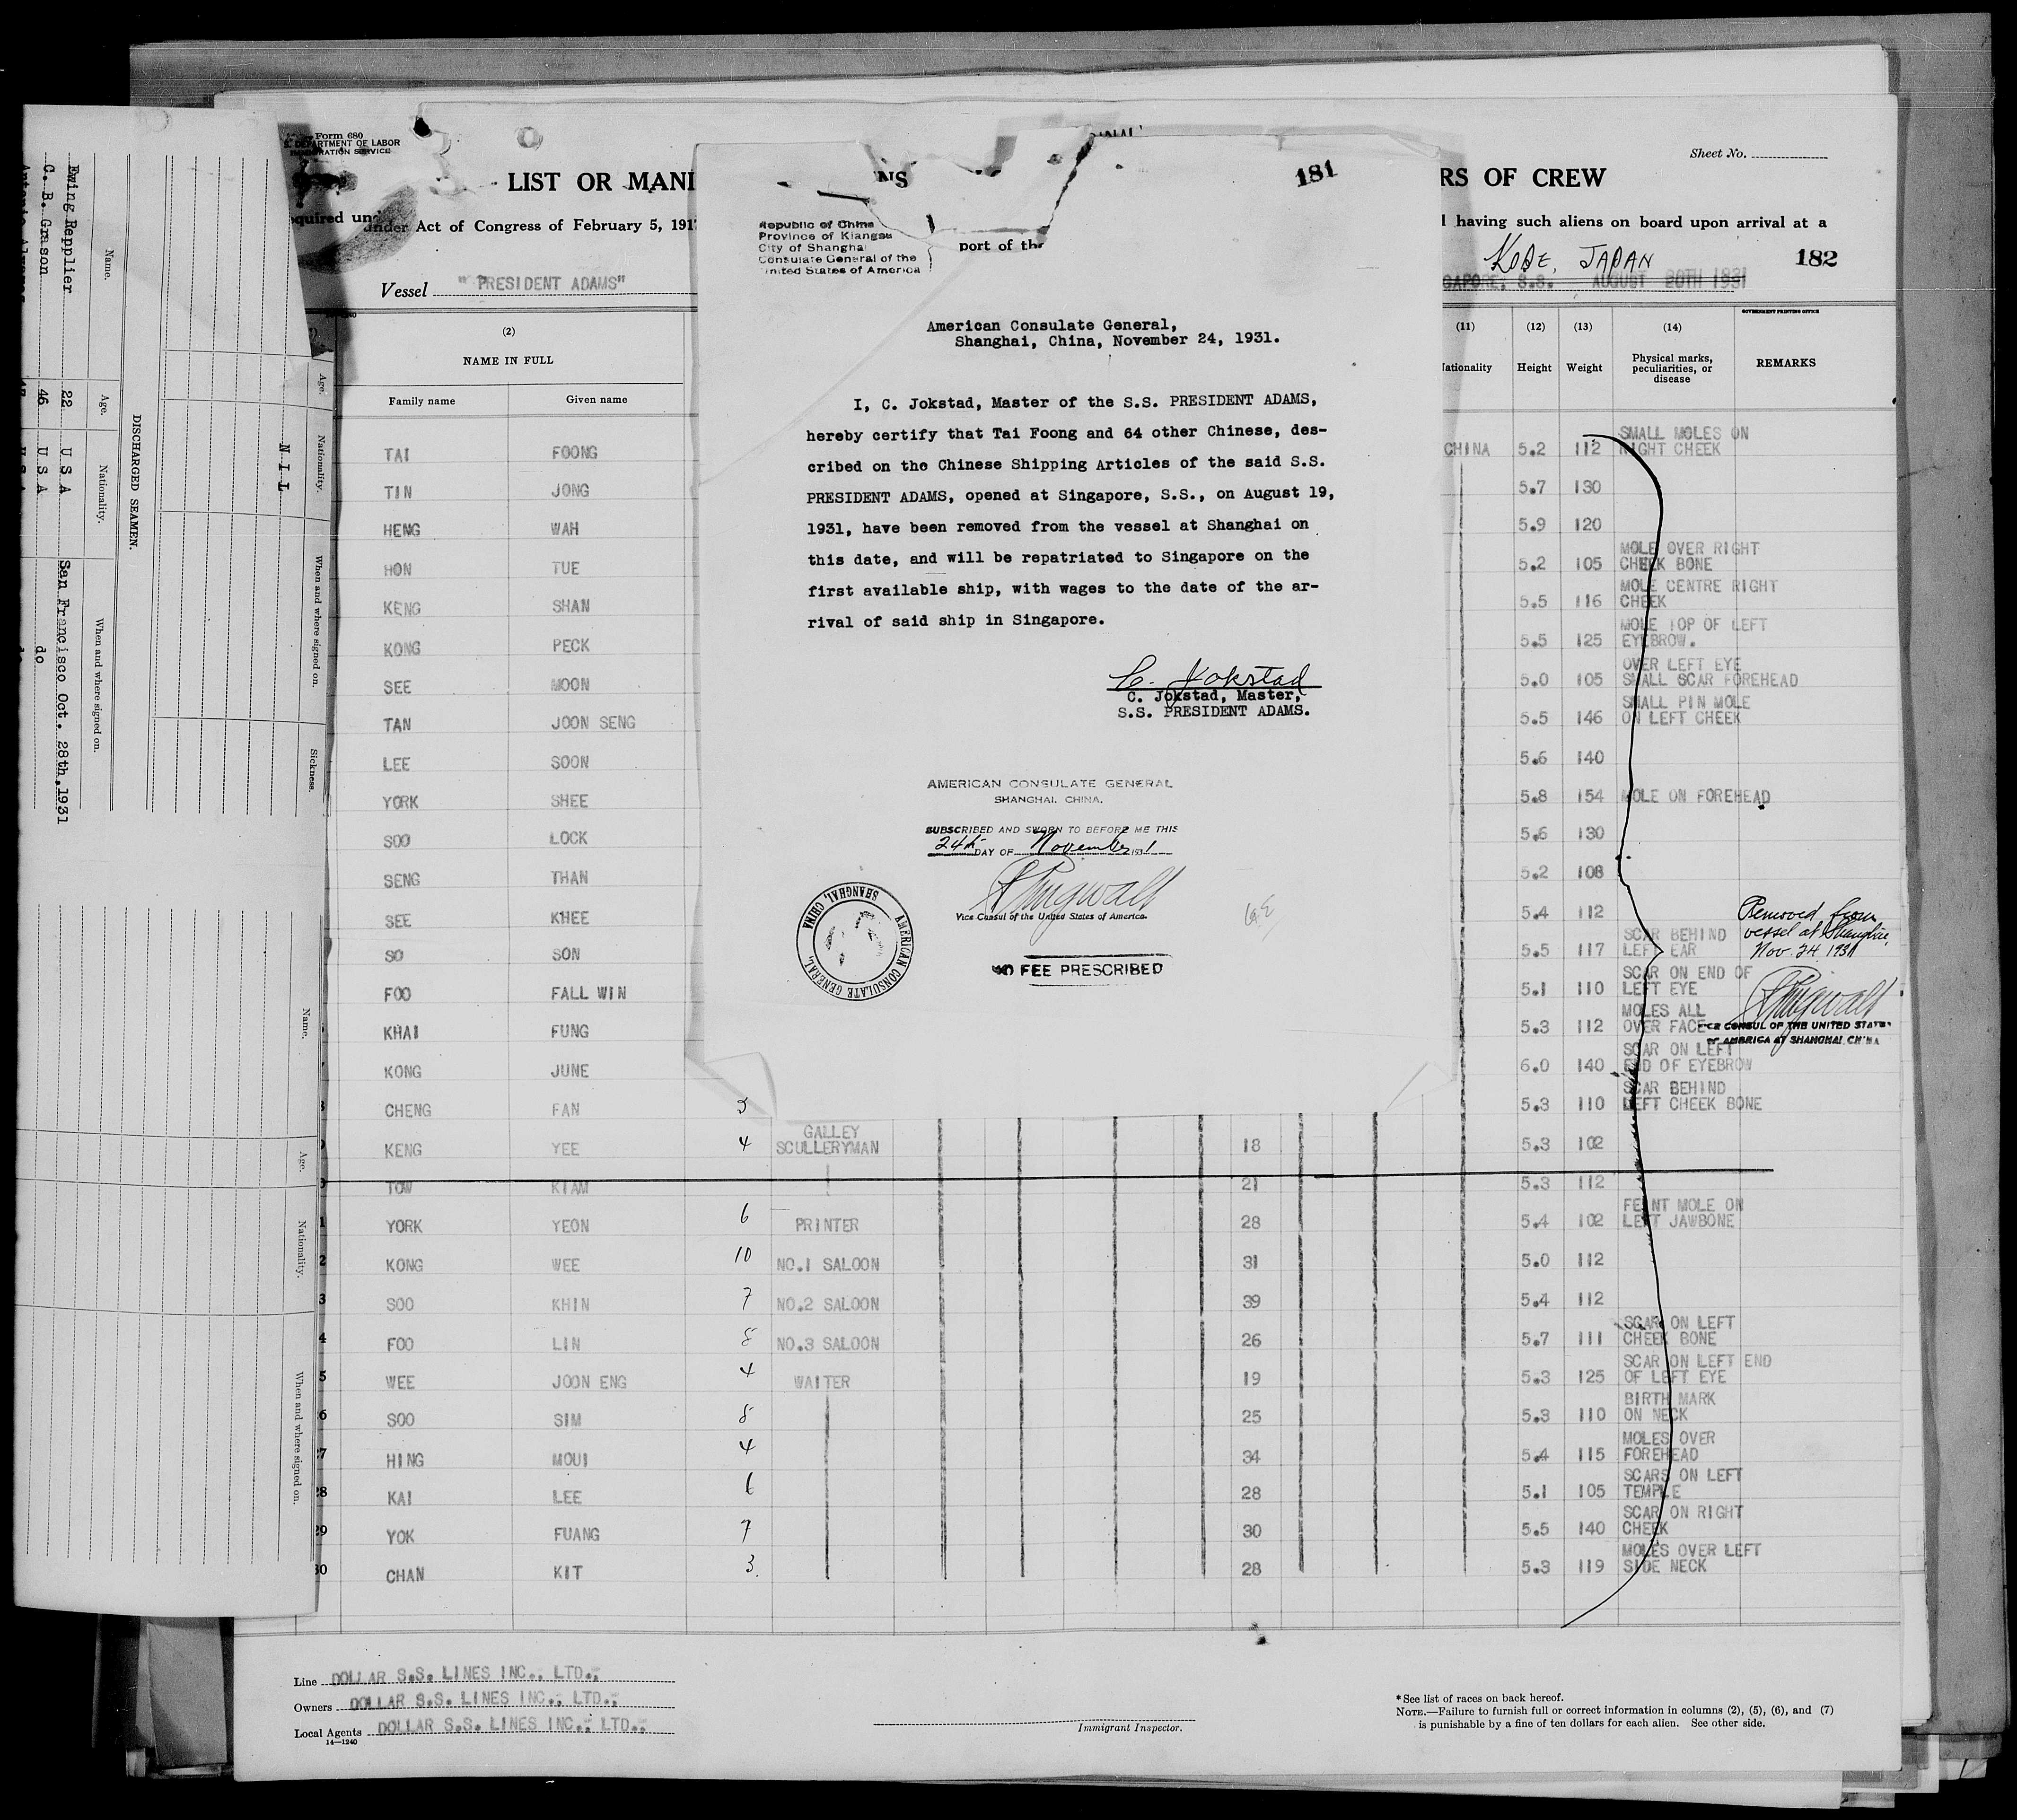 Form 680
DEPARTMENT OF LABOR
IMMIGRATION SERVICE
Sheet No.
LIST OR MANI
RS OF CREW
quired und
under Act of Congress of February 5, 191
l having such aliens on board upon arrival at a
Vessel "PRESIDENT ADAMS"
KOBE, JAPAN
182
GAPORE. S.S. AUGUST 20TH 1931
181
NS
Republic of China
Province of Kiangsu
City of Shanghai
Consulate General of the
United States of America
port of the
American Consulate General,
Shanghai, China, November 24, 1931.
I, C. Jokstad, Master of the S.S. PRESIDENT ADAMS,
hereby certify that Tai Foong and 64 other Chinese, des-
cribed on the Chinese Shipping Articles of the said S.S.
PRESIDENT ADAMS, opened at Singapore, S.S., on August 19,
1931, have been removed from the vessel at Shanghai on
this date, and will be repatriated to Singapore on the
first available ship, with wages to the date of the ar-
rival of said ship in Singapore.
C. Jokstad
C. Jokstad, Master,
S.S. PRESIDENT ADAMS.
AMERICAN CONSULATE GENERAL
SHANGHAI, CHINA.
SUBSCRIBED AND SWORN TO BEFORE ME THIS
24th DAY OF November 1931
Vice Consul of the United States of America.
AMERICAN CONSULATE GENERAL, SHANGHAI, CHINA
NO FEE PRESCRIBED
(2)
NAME IN FULL
Family name Given name
(11) (12) (13) (14)
GOVERNMENT PRINTING OFFICE
Nationality Height Weight Physical marks, peculiarities, or disease REMARKS
TAI FOONG CHINA 5.2 112 SMALL MOLES ON RIGHT CHEEK
TIN JONG 5.7 130
HENG WAH 5.9 120
HON TUE 5.2 105 MOLE OVER RIGHT CHEEK BONE
KENG SHAN 5.5 116 MOLE CENTRE RIGHT CHEEK
KONG PECK 5.5 125 MOLE TOP OF LEFT EYEBROW.
SEE MOON 5.0 105 OVER LEFT EYE SMALL SCAR FOREHEAD
TAN JOON SENG 5.5 146 SMALL PIN MOLE ON LEFT CHEEK
LEE SOON 5.6 140
YORK SHEE 5.8 154 MOLE ON FOREHEAD
SOO LOCK 5.6 130
SENG THAN 5.2 108
SEE KHEE 5.4 112
SO SON 5.5 117 SCAR BEHIND LEFT EAR
FOO FALL WIN 5.1 110 SCAR ON END OF LEFT EYE
KHAI FUNG 5.3 112 MOLES ALL OVER FACE
KONG JUNE 6.0 140 SCAR ON LEFT END OF EYEBROW
CHENG FAN 3 5.3 110 SCAR BEHIND LEFT CHEEK BONE
KENG YEE 4 GALLEY SCULLERYMAN 18 5.3 102
TOW KIAM 21 5.3 112
YORK YEON 6 PRINTER 28 5.4 102 FEINT MOLE ON LEFT JAWBONE
KONG WEE 10 NO.1 SALOON 31 5.0 112
SOO KHIN 7 NO.2 SALOON 39 5.4 112
FOO LIN 8 NO.3 SALOON 26 5.7 111 SCAR ON LEFT CHEEK BONE
WEE JOON ENG 4 WAITER 19 5.3 125 SCAR ON LEFT END OF LEFT EYE
SOO SIM 8 25 5.3 110 BIRTH MARK ON NECK
HING MOUI 4 34 5.4 115 MOLES OVER FOREHEAD
28 KAI LEE 6 28 5.1 105 SCARS ON LEFT TEMPLE
29 YOK FUANG 7 30 5.5 140 SCAR ON RIGHT CHEEK
30 CHAN KIT 3. 28 5.3 119 MOLES OVER LEFT SIDE NECK
Removed from
vessel at Shanghai,
Nov. 24 1931
VICE CONSUL OF THE UNITED STATES
OF AMERICA AT SHANGHAI, CHINA
Line DOLLAR S.S. LINES INC., LTD.,
Owners DOLLAR S.S. LINES INC., LTD.,
Local Agents DOLLAR S.S. LINES INC., LTD.,
14—1240
Immigrant Inspector.
*See list of races on back hereof.
NOTE.—Failure to furnish full or correct information in columns (2), (5), (6), and (7)
is punishable by a fine of ten dollars for each alien. See other side.
DISCHARGED SEAMEN.
Name. Age. Nationality. When and where signed on.
Ewing Repplier 22 U S A San Francisco Oct. 28th,1931
C. B. Grason 46 U S A do
Age. Nationality. When and where signed on. Sickness.
N I L
Name. Age. Nationality. When and where signed on.